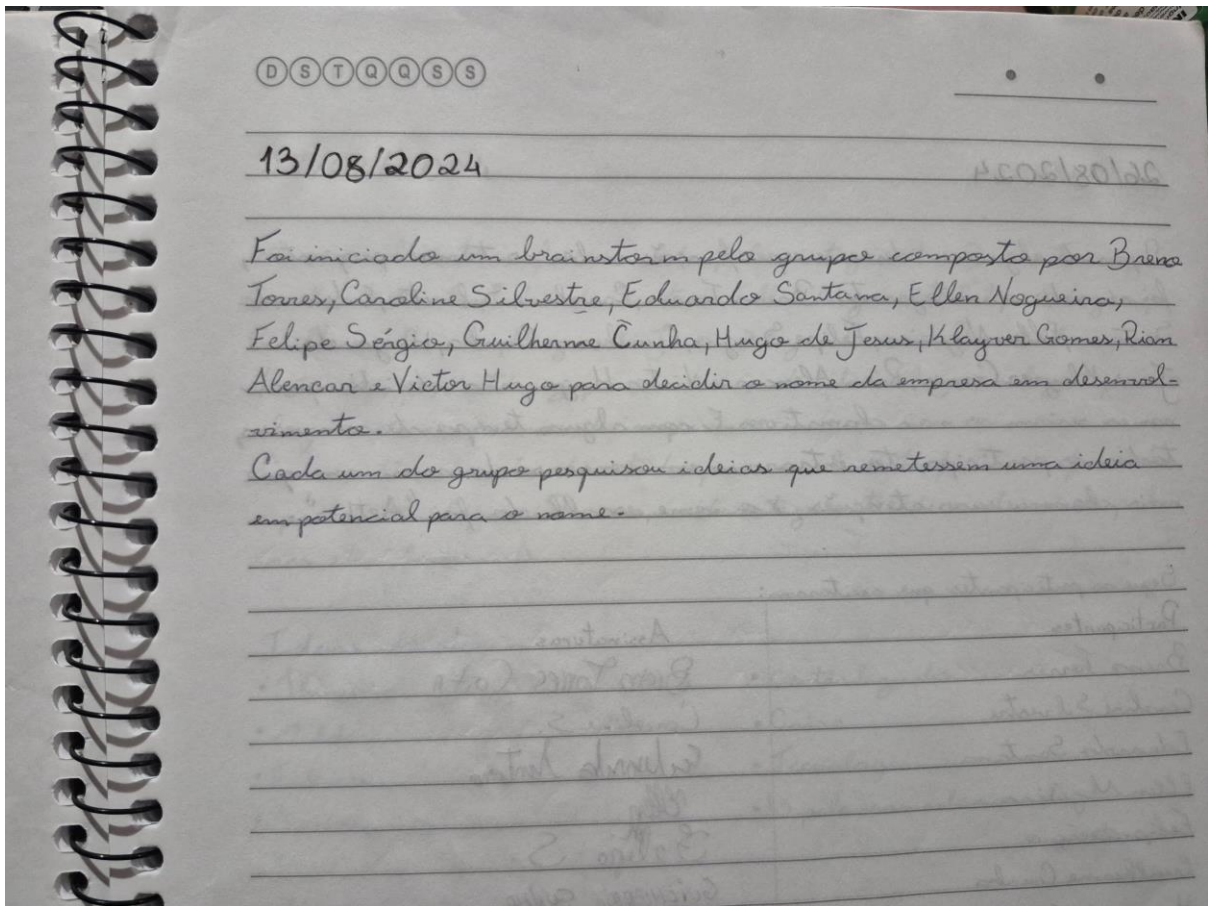 D S T Q Q S S
13/08/2024
26/08/2024
Foi iniciado um brainstorm pelo grupo composto por Breno
Torres, Caroline Silvestre, Eduardo Santana, Ellen Nogueira,
Felipe Sérgio, Guilherme Cunha, Hugo de Jesus, Klayver Gomes, Rian
Alencar e Victor Hugo para decidir o nome da empresa em desenvol-
vimento.
Cada um do grupo pesquisou ideias que remetessem uma ideia
em potencial para o nome.